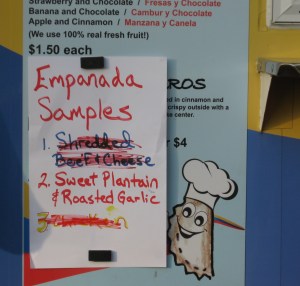 Strawberry and Chocolate / Fresas y Chocolate
Banana and Chocolate / Cambur y Chocolate
Apple and Cinnamon / Manzana y Canela
(We use 100% real fresh fruit!)
$1.50 each
Empanada
Samples
ROS
1. Shredded
Beef & Cheese
2. Sweet Plantain
& Roasted Garlic
3. Chicken
ed in cinnamon and
crispy outside with a
e center.
r $4